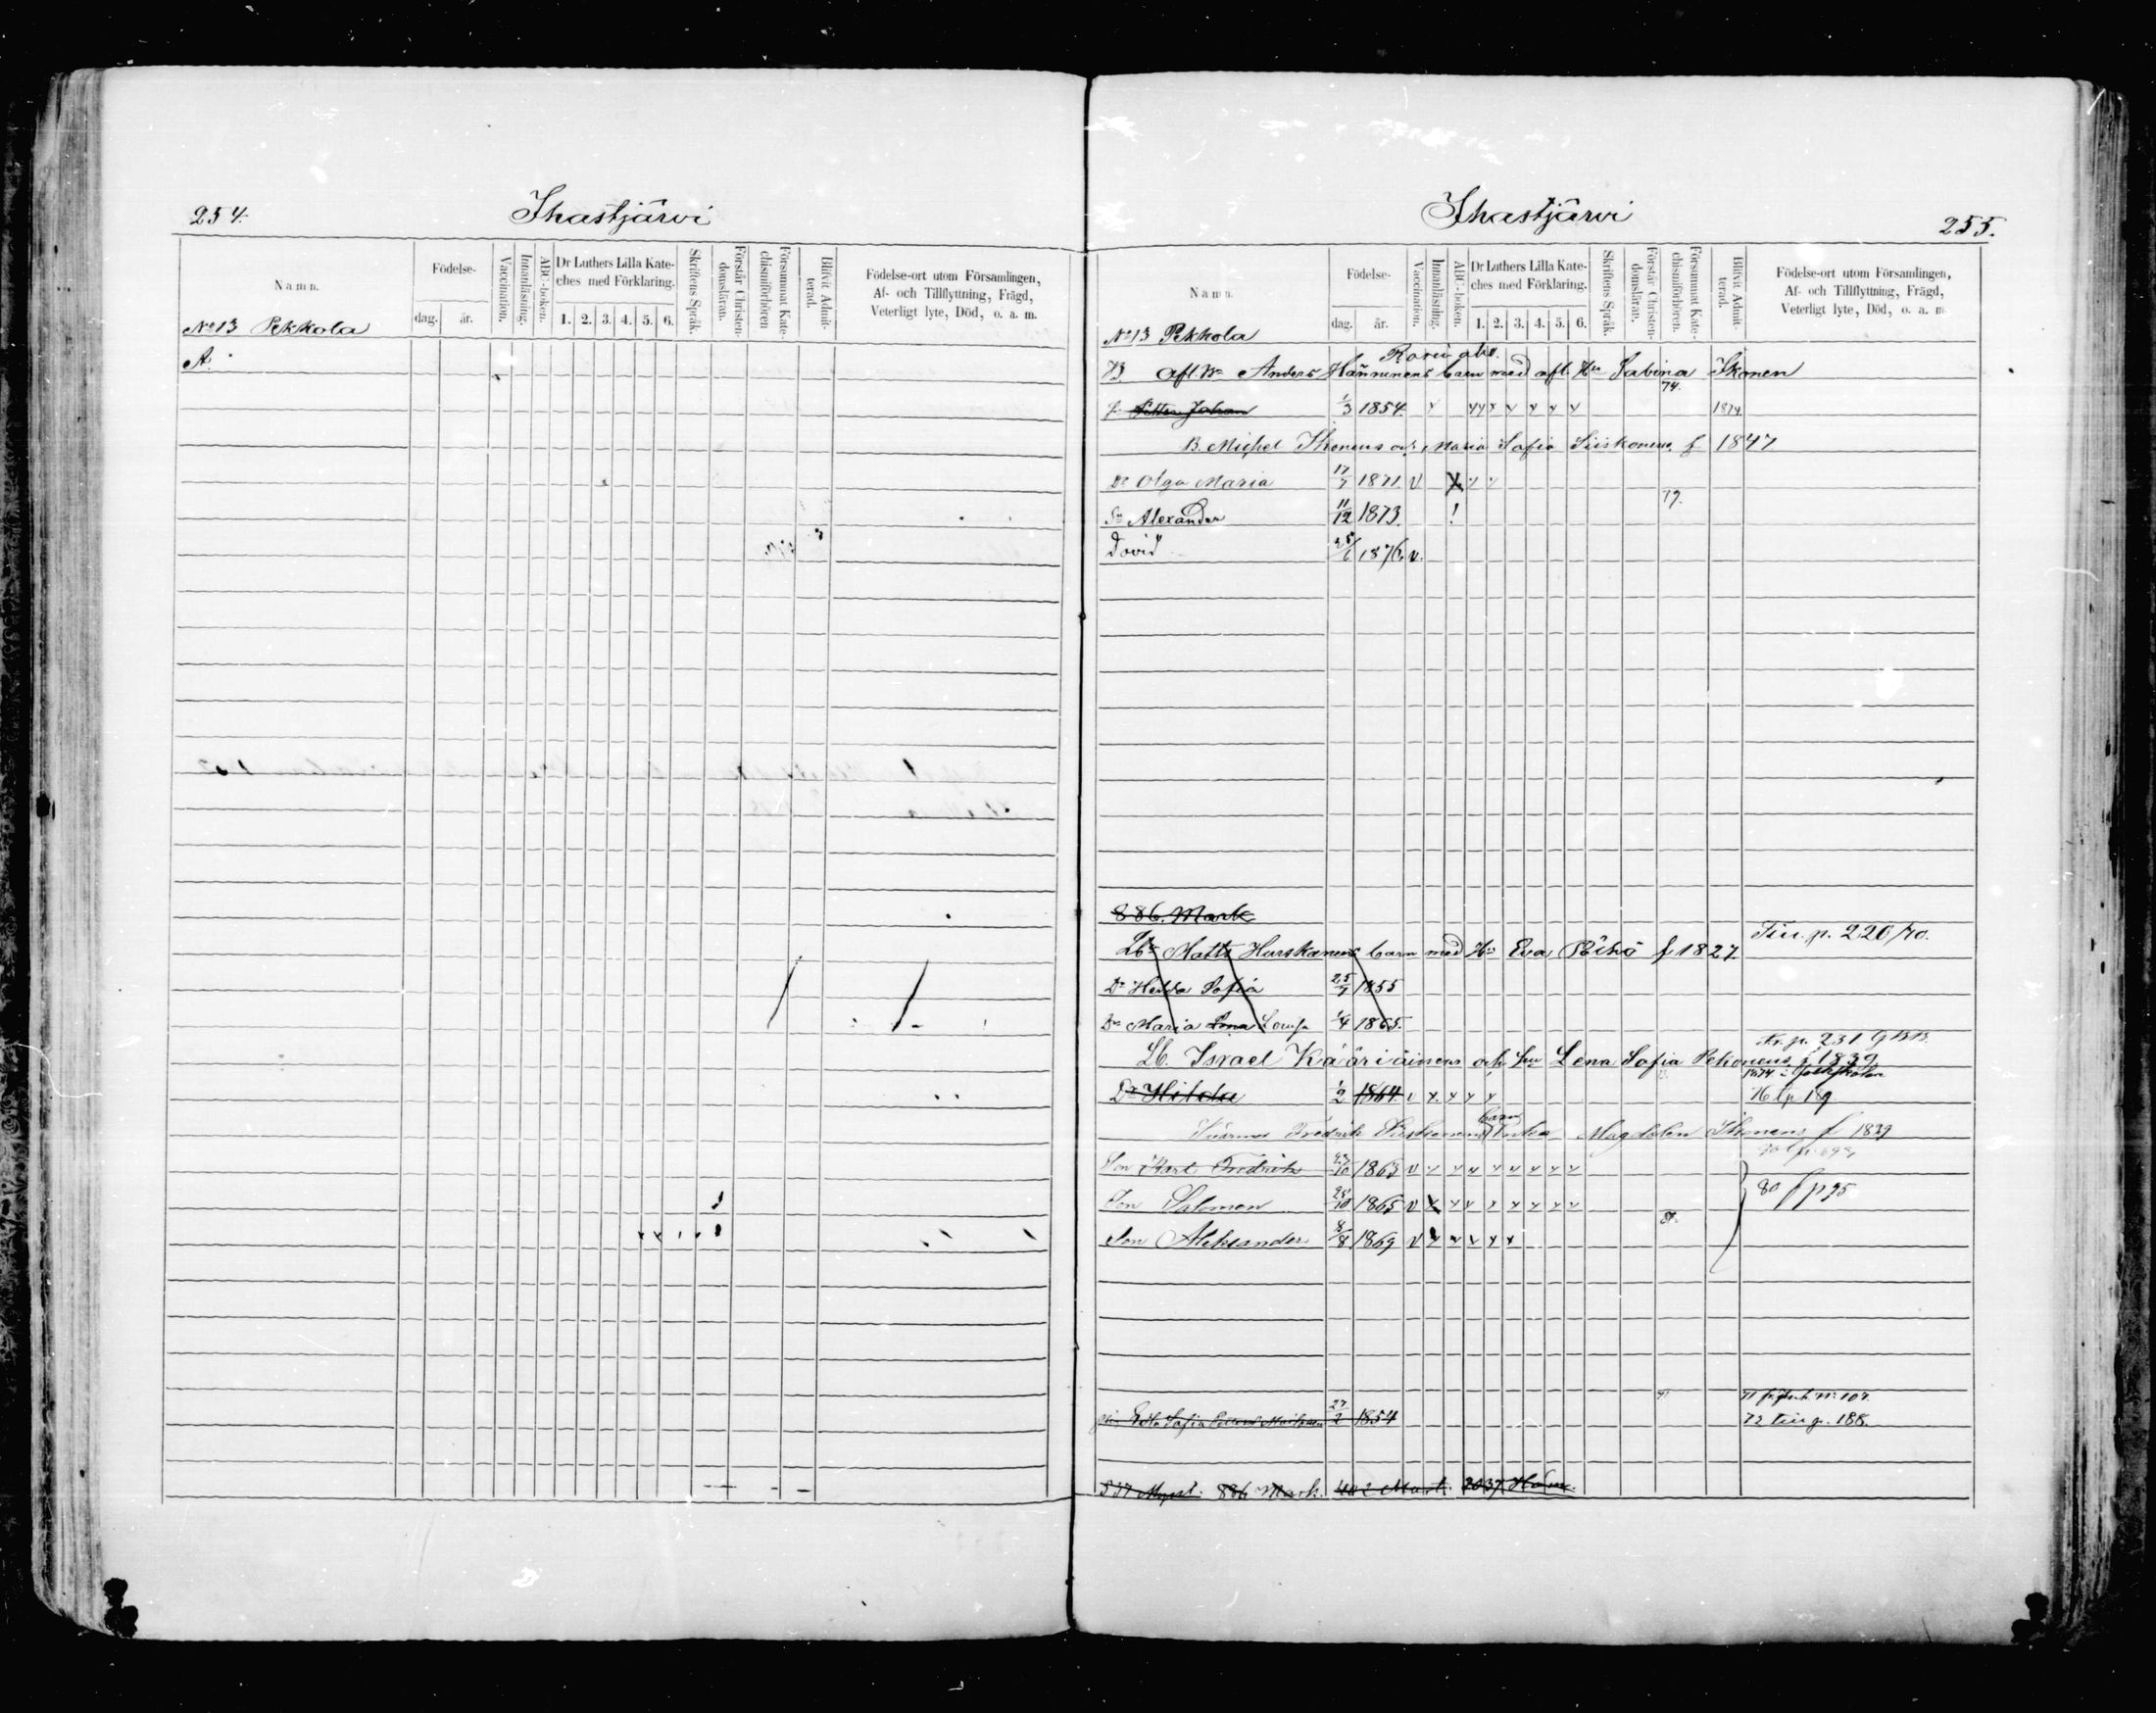 254.
Ihastjärvi
Namn.
Födelse-
dag.
år.
Vaccination.
Innanläsning.
ABC-boken.
Dr Luthers Lilla Kate-
ches med Förklaring.
1. 2. 3. 4. 5. 6.
Skriftens Språk.
Förstår Christen-
domsläran.
Försummat Kate-
chismiförhören
Blifvit Admit-
terad.
Födelse-ort utom Församlingen,
Af- och Tillflyttning, Frägd,
Veterligt lyte, Död, o. a. m.
No 13 Pekkola
A.
Ihastjärvi
255.
Namn.
Födelse-
dag.
år.
Vaccination.
Innanläsning.
ABC-boken.
Dr Luthers Lilla Kate-
ches med Förklaring.
1. 2. 3. 4. 5. 6.
Skriftens Språk.
Förstår Christen-
domsläran.
Försummat Kate-
chismiförhören.
Blifvit Admit-
terad.
Födelse-ort utom Församlingen,
Af- och Tillflyttning, Frägd,
Veterligt lyte, Död, o. a. m
No 13 Pekkola
B. afl. Bn Anders Hännunens barn med afl. Hu Sabina Ikonen
74.
Johan 1/3 1854 1874
B. Michel Ikonens och Maria Sofia Siiskonens f 1847
Dr Olga Maria 17/7 1871 v
79.
Sn Alexander 11/12 1873. !
David 25/6 1876. v.
886. Mark
Lbn Matts Hurskanens barn med Hu Eva f 1827. p. 220/70.
Dr Hedda Sofia 25/7 1855
Dr Maria Lovisa 1/4 1865.
p. 231
Lb. Israel Kääriäinens och hu Lena Sofia Pekonens f 1839
Dr Hilda 1/2 1864 v
Fredrik barn Magdalen Ikonens f 1839
Son Karl Fredrik 23/10 1863 v
Son Salomon 25/10 1865 v 80 f p 95
Son Aleksander 8/8 1869 v
Sofia 27/2 1854 72 p. 188.
886 Mark. 402 2037